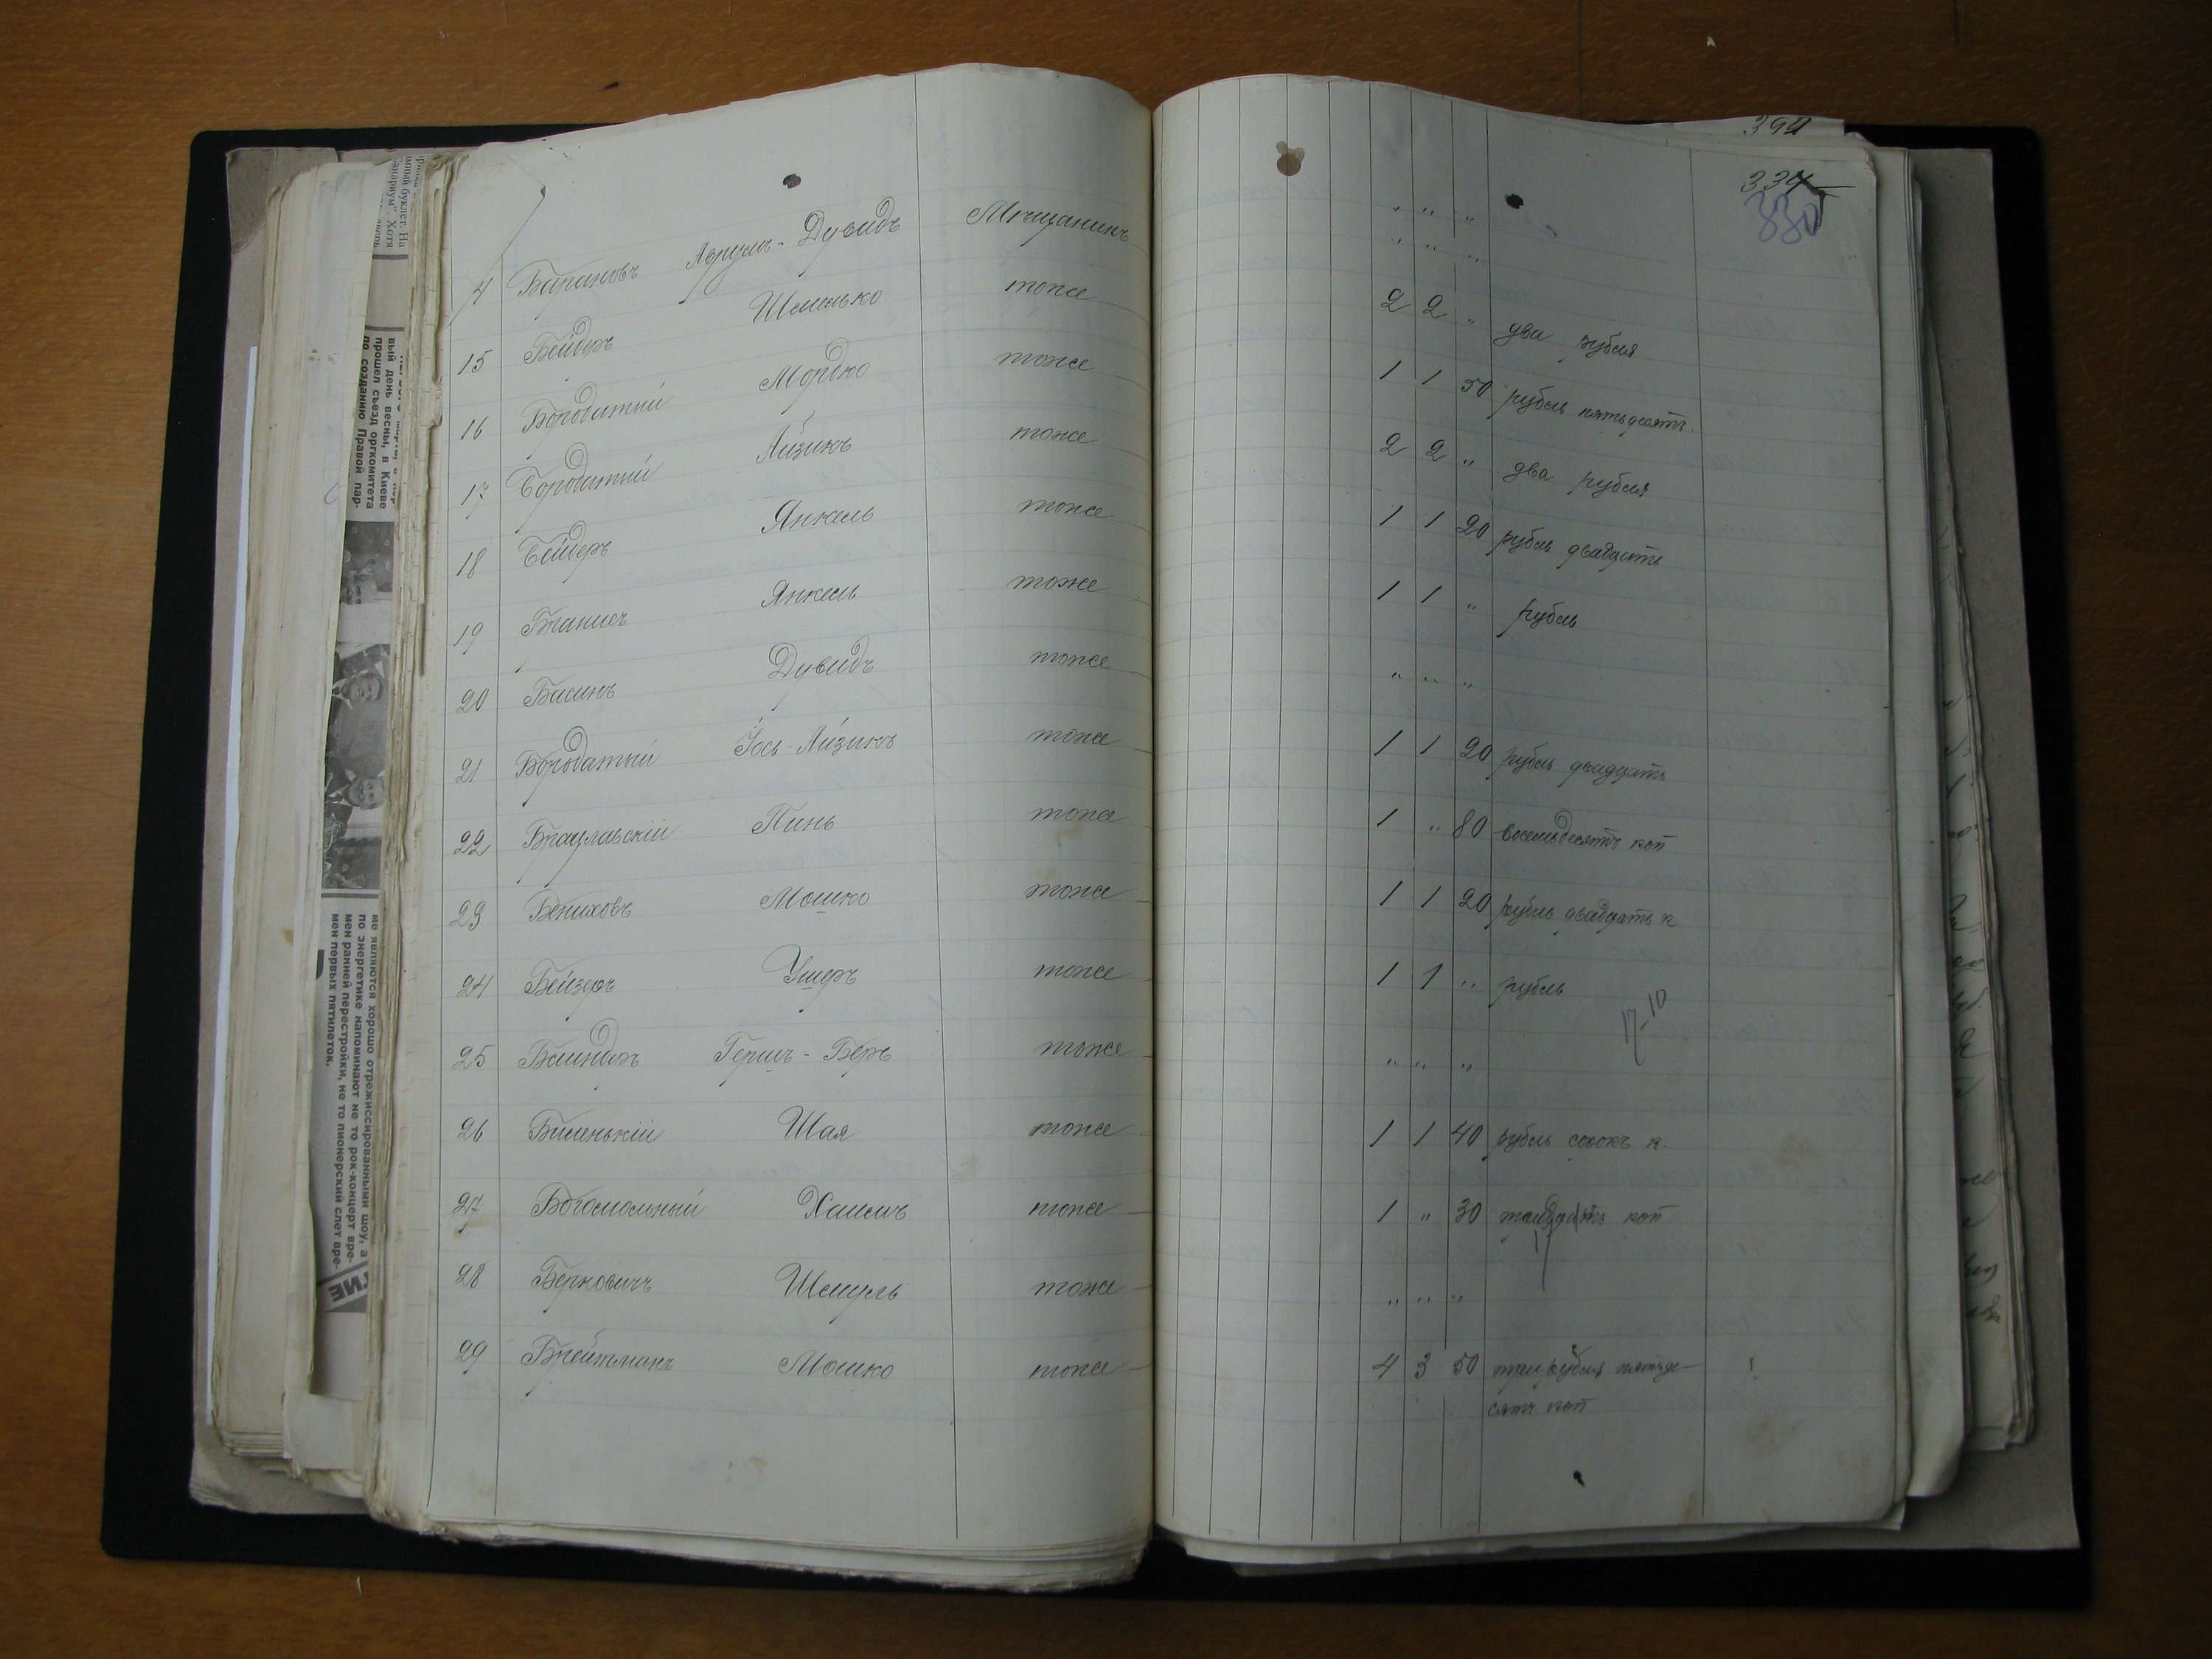 394
334
330
4 Барановъ Аврумъ-Дувидъ Мѣщанинъ " " "
15 Бейдеръ Шмилько тоже " " "
16 Бородатый Мордко тоже 2 2 " два рубля
17 Бородатый Айзикъ тоже 1 1 50 рубль пятьдесятъ.
18 Бейдеръ Янкель тоже 2 2 " два рубля
19 Янкель тоже 1 1 20 рубль двадцать
20 Басинъ Дувидъ тоже 1 1 " рубль
21 Бородатый Іось-Айзикъ тоже " " "
22 Браславскій Пинь тоже 1 1 20 рубль двадцать
23 Бениховъ Мошко тоже 1 " 80 восемьдесятъ коп
24 Бейзеръ Ушеръ тоже 1 1 20 рубль двадцать к
25 Блиндеръ Гершъ-Беръ тоже 1 1 " рубль
17-10
26 Биленькій Шая тоже " " "
27 Богомольный Хаимъ тоже 1 1 40 рубль сорокъ к.
28 Берковичъ Шмуль тоже 1 " 30 тридцать коп
29 Брейтманъ Мошко тоже " " "
4 3 50 три рубля пятьде-
сятъ коп
вый день весны, в Киеве
прошел съезд оргкомитета
по созданию Правой пар-
ме являются хорошо отрежиссированными шоу, а
по энергетике напоминают не то рок-концерт вре-
мен ранней перестройки, не то пионерский слет вре-
мен первых пятилеток.